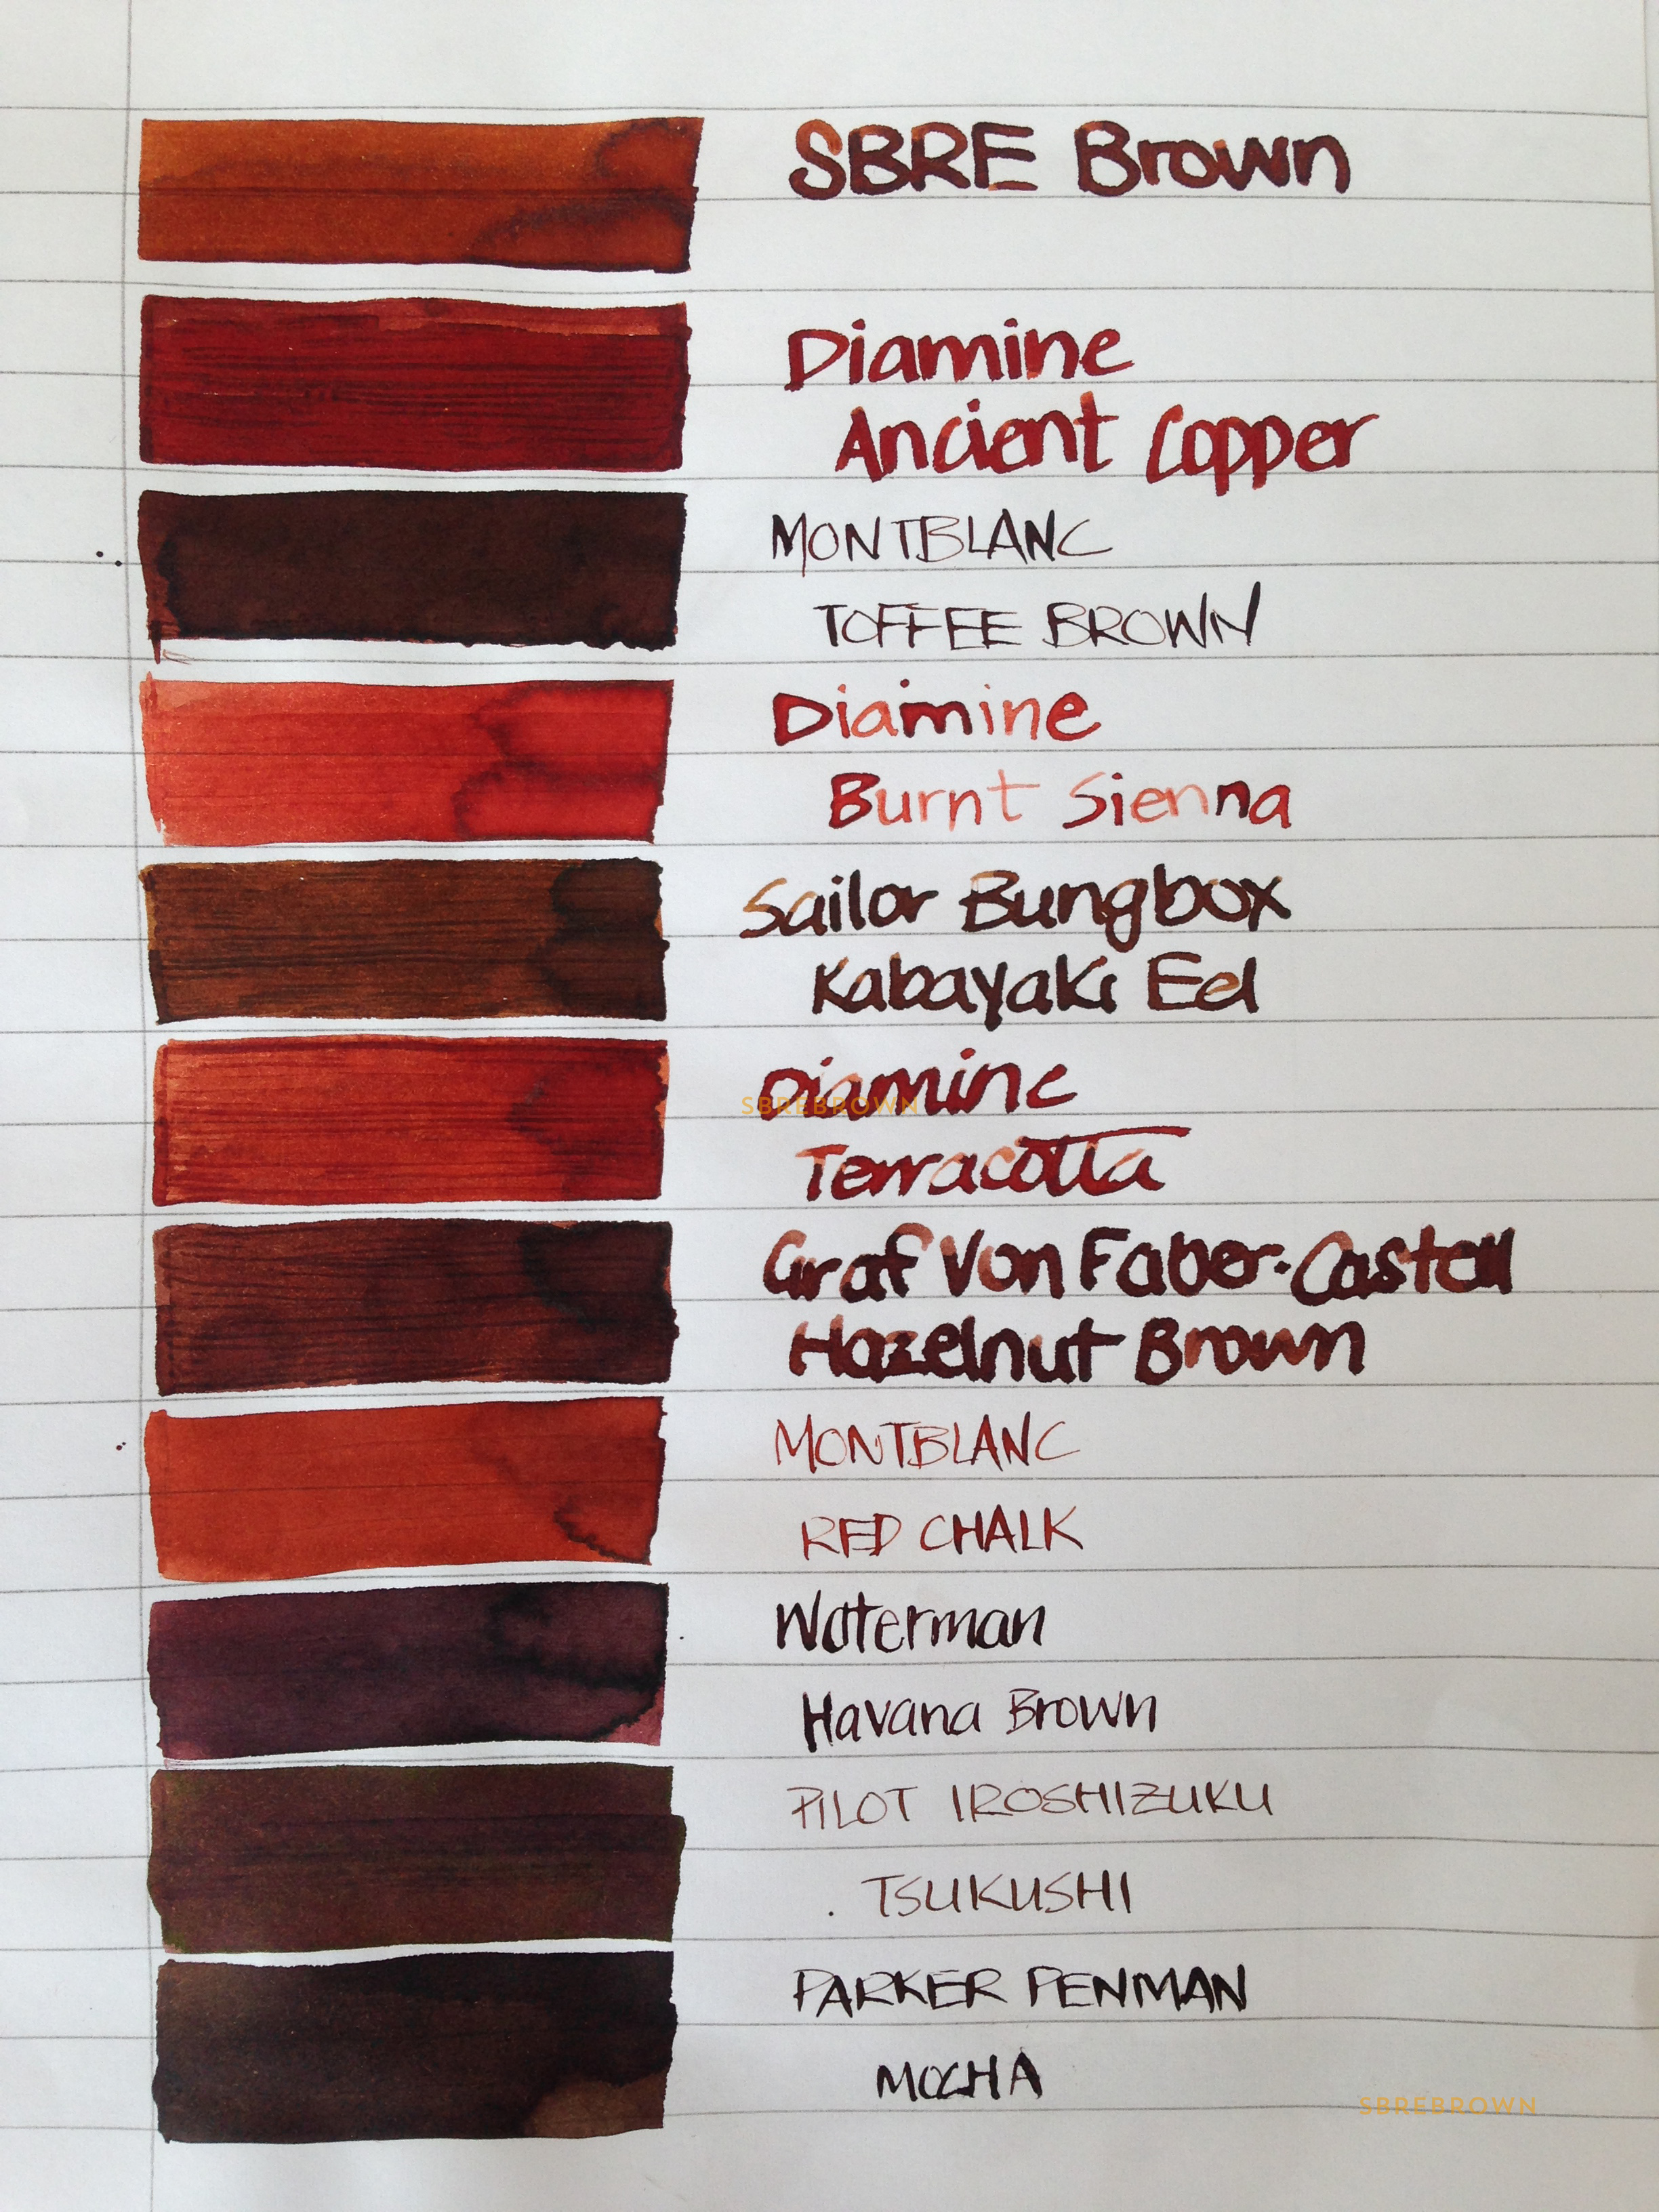 SBRE Brown
Diamine
Ancient Copper
MONTBLANC
TOFFEE BROWN
Diamine
Burnt Sienna
Sailor Bungbox
Kabayaki Eel
Diamine
SBREBROWN
Terracotta
Graf Von Faber-Castell
Hazelnut Brown
MONTBLANC
RED CHALK
Waterman
Havana Brown
PILOT IROSHIZUKU
TSUKUSHI
PARKER PENMAN
MOCHA
SBREBROWN